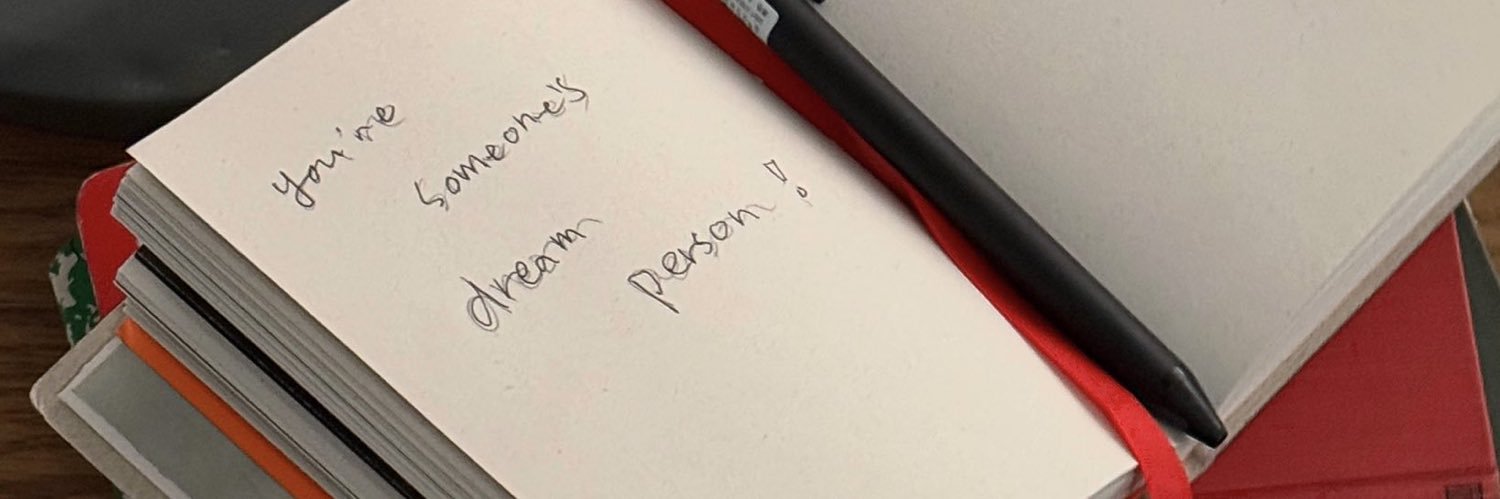 you're someone's
dream person!